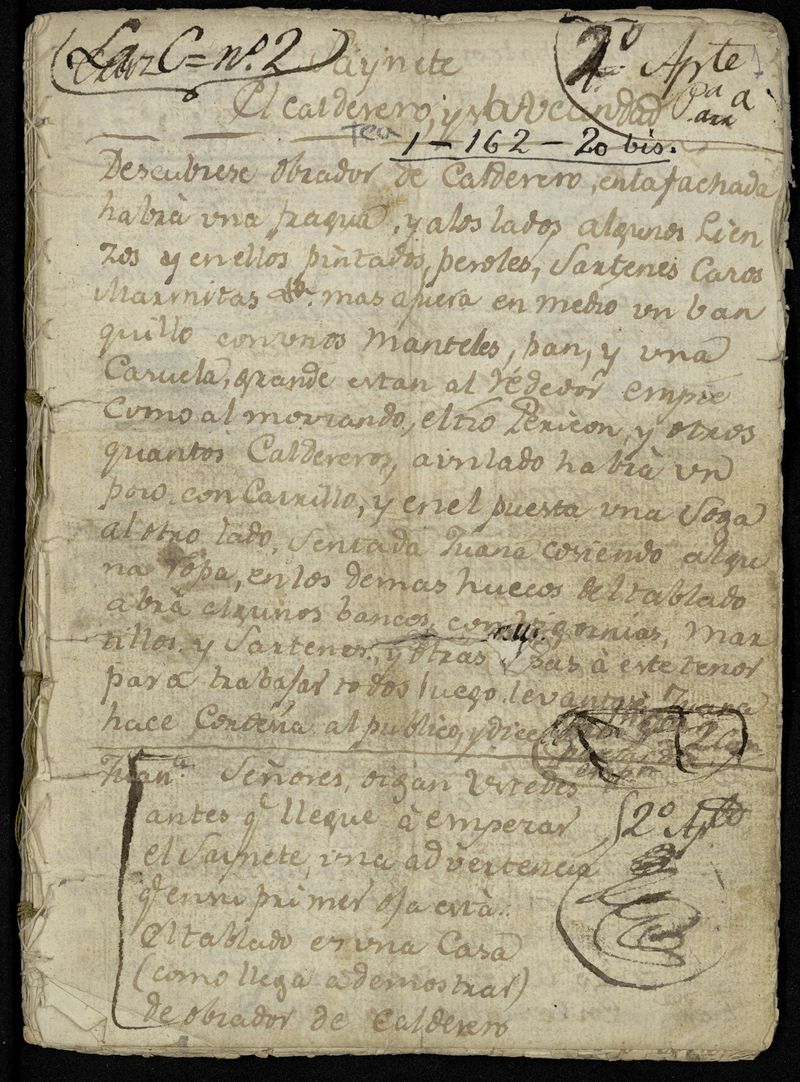 Leg. C = nº. 2
2º Apte
Saynete
El Calderero, y la vecindad
Tea
1 - 162 - 20 bis.
Descubrese obrador de Calderero, en la fachada
habrà una fragua, y a los lados algunos Lien
zos y en ellos pintados, peroles, Sartenes Cazos
Marmitas &a. mas afuera en medio un ban
quillo con unos Manteles, pan, y una
Cazuela, grande estan al rededor empie
Como almorzando, el tio Pericon, y otros
quantos Caldereros, a un lado habrà un
pozo con Carrillo, y en el puesta una Soga
al otro lado, sentada Juana cosiendo algu
na ropa, en los demas huecos del tablado
abrà algunos bancos, con bigornias, Mar
tillos y Sartenes, y otras cosas à este tenor
para trabajar todos luego levantase Juana
hace Cortesia al publico, y dice
Juana. Señores, oigan Ustedes
antes q.e llegue à empezar
el Saynete, una advertencia
q.e en su primer oja està.
El tablado es una Casa
(como llega a demostrar)
de obrador de Calderero
2º Apte